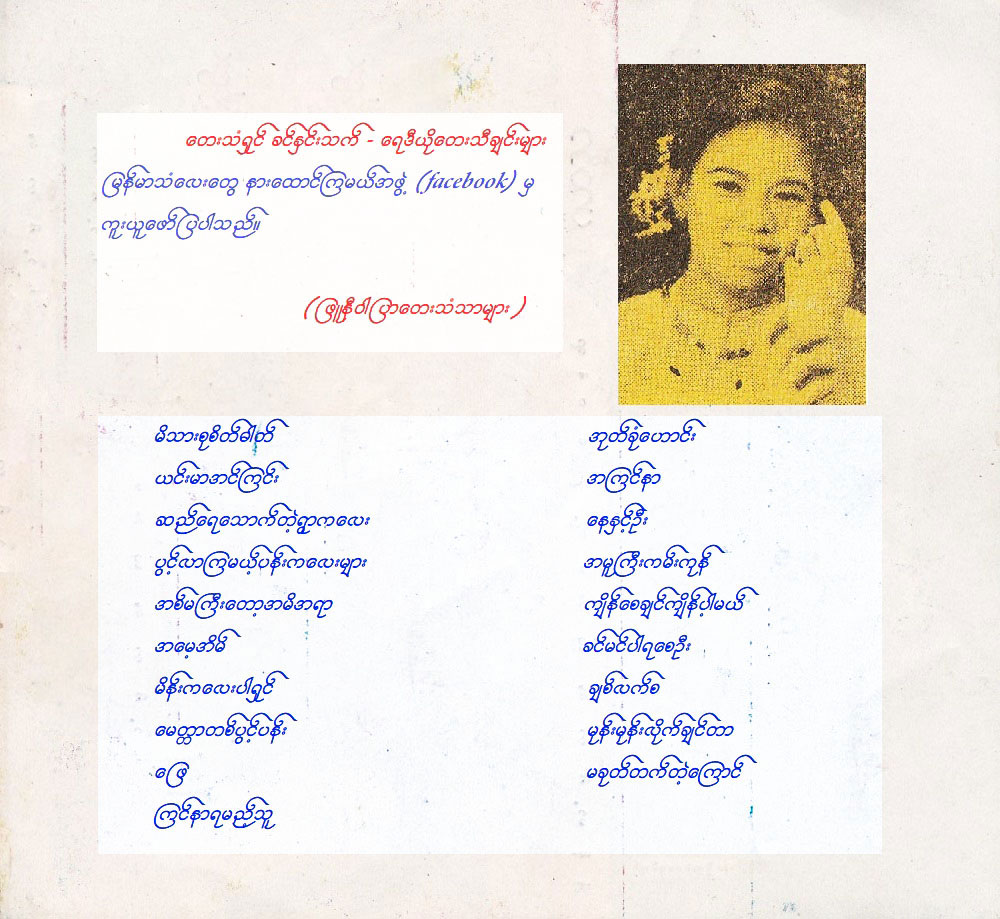 တေးသံရှင် ခင်နှင်းသက် - ရေဒီယိုတေးသီချင်းများ
မြန်မာသံလေးတွေ နားထောင်ကြမယ်အဖွဲ့ (facebook) မှ
ကူးယူဖော်ပြပါသည်။
(ဖြူနီဝါပြာတေးသံသာများ )
မိသားစုစိတ်ဓါတ်
ယင်းမာအင်ကြင်း
ဆည်ရေသောက်တဲ့ရွာကလေး
ပွင့်လာကြမယ့်ပန်းကလေးများ
အစ်မကြီးတော့အမိအရာ
အမေ့အိမ်
မိန်းကလေးပါရှင်
မေတ္တာတစ်ပွင့်ပန်း
ဖြေ
ကြင်နာရမည့်သူ
အုတ်ခုံဟောင်း
အကြင်နာ
နေနှင့်ဦး
အမူကြီးကမ်းကုန်
ကျိန်စေချင်ကျိန်ပါ့မယ်
ခင်မင်ပါရစေဦး
ချစ်လက်စ
မုန်းမုန်းလိုက်ချင်တာ
မခုတ်တက်တဲ့ကြောင်